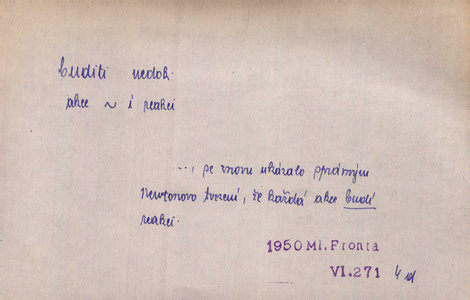 budíti nedok.
akce ~ i reakci
..., se znovu ukázalo správným
Newtonovo tvrzení, že každá akce budí
reakci.
1950 Ml. Fronta
VI.271 4